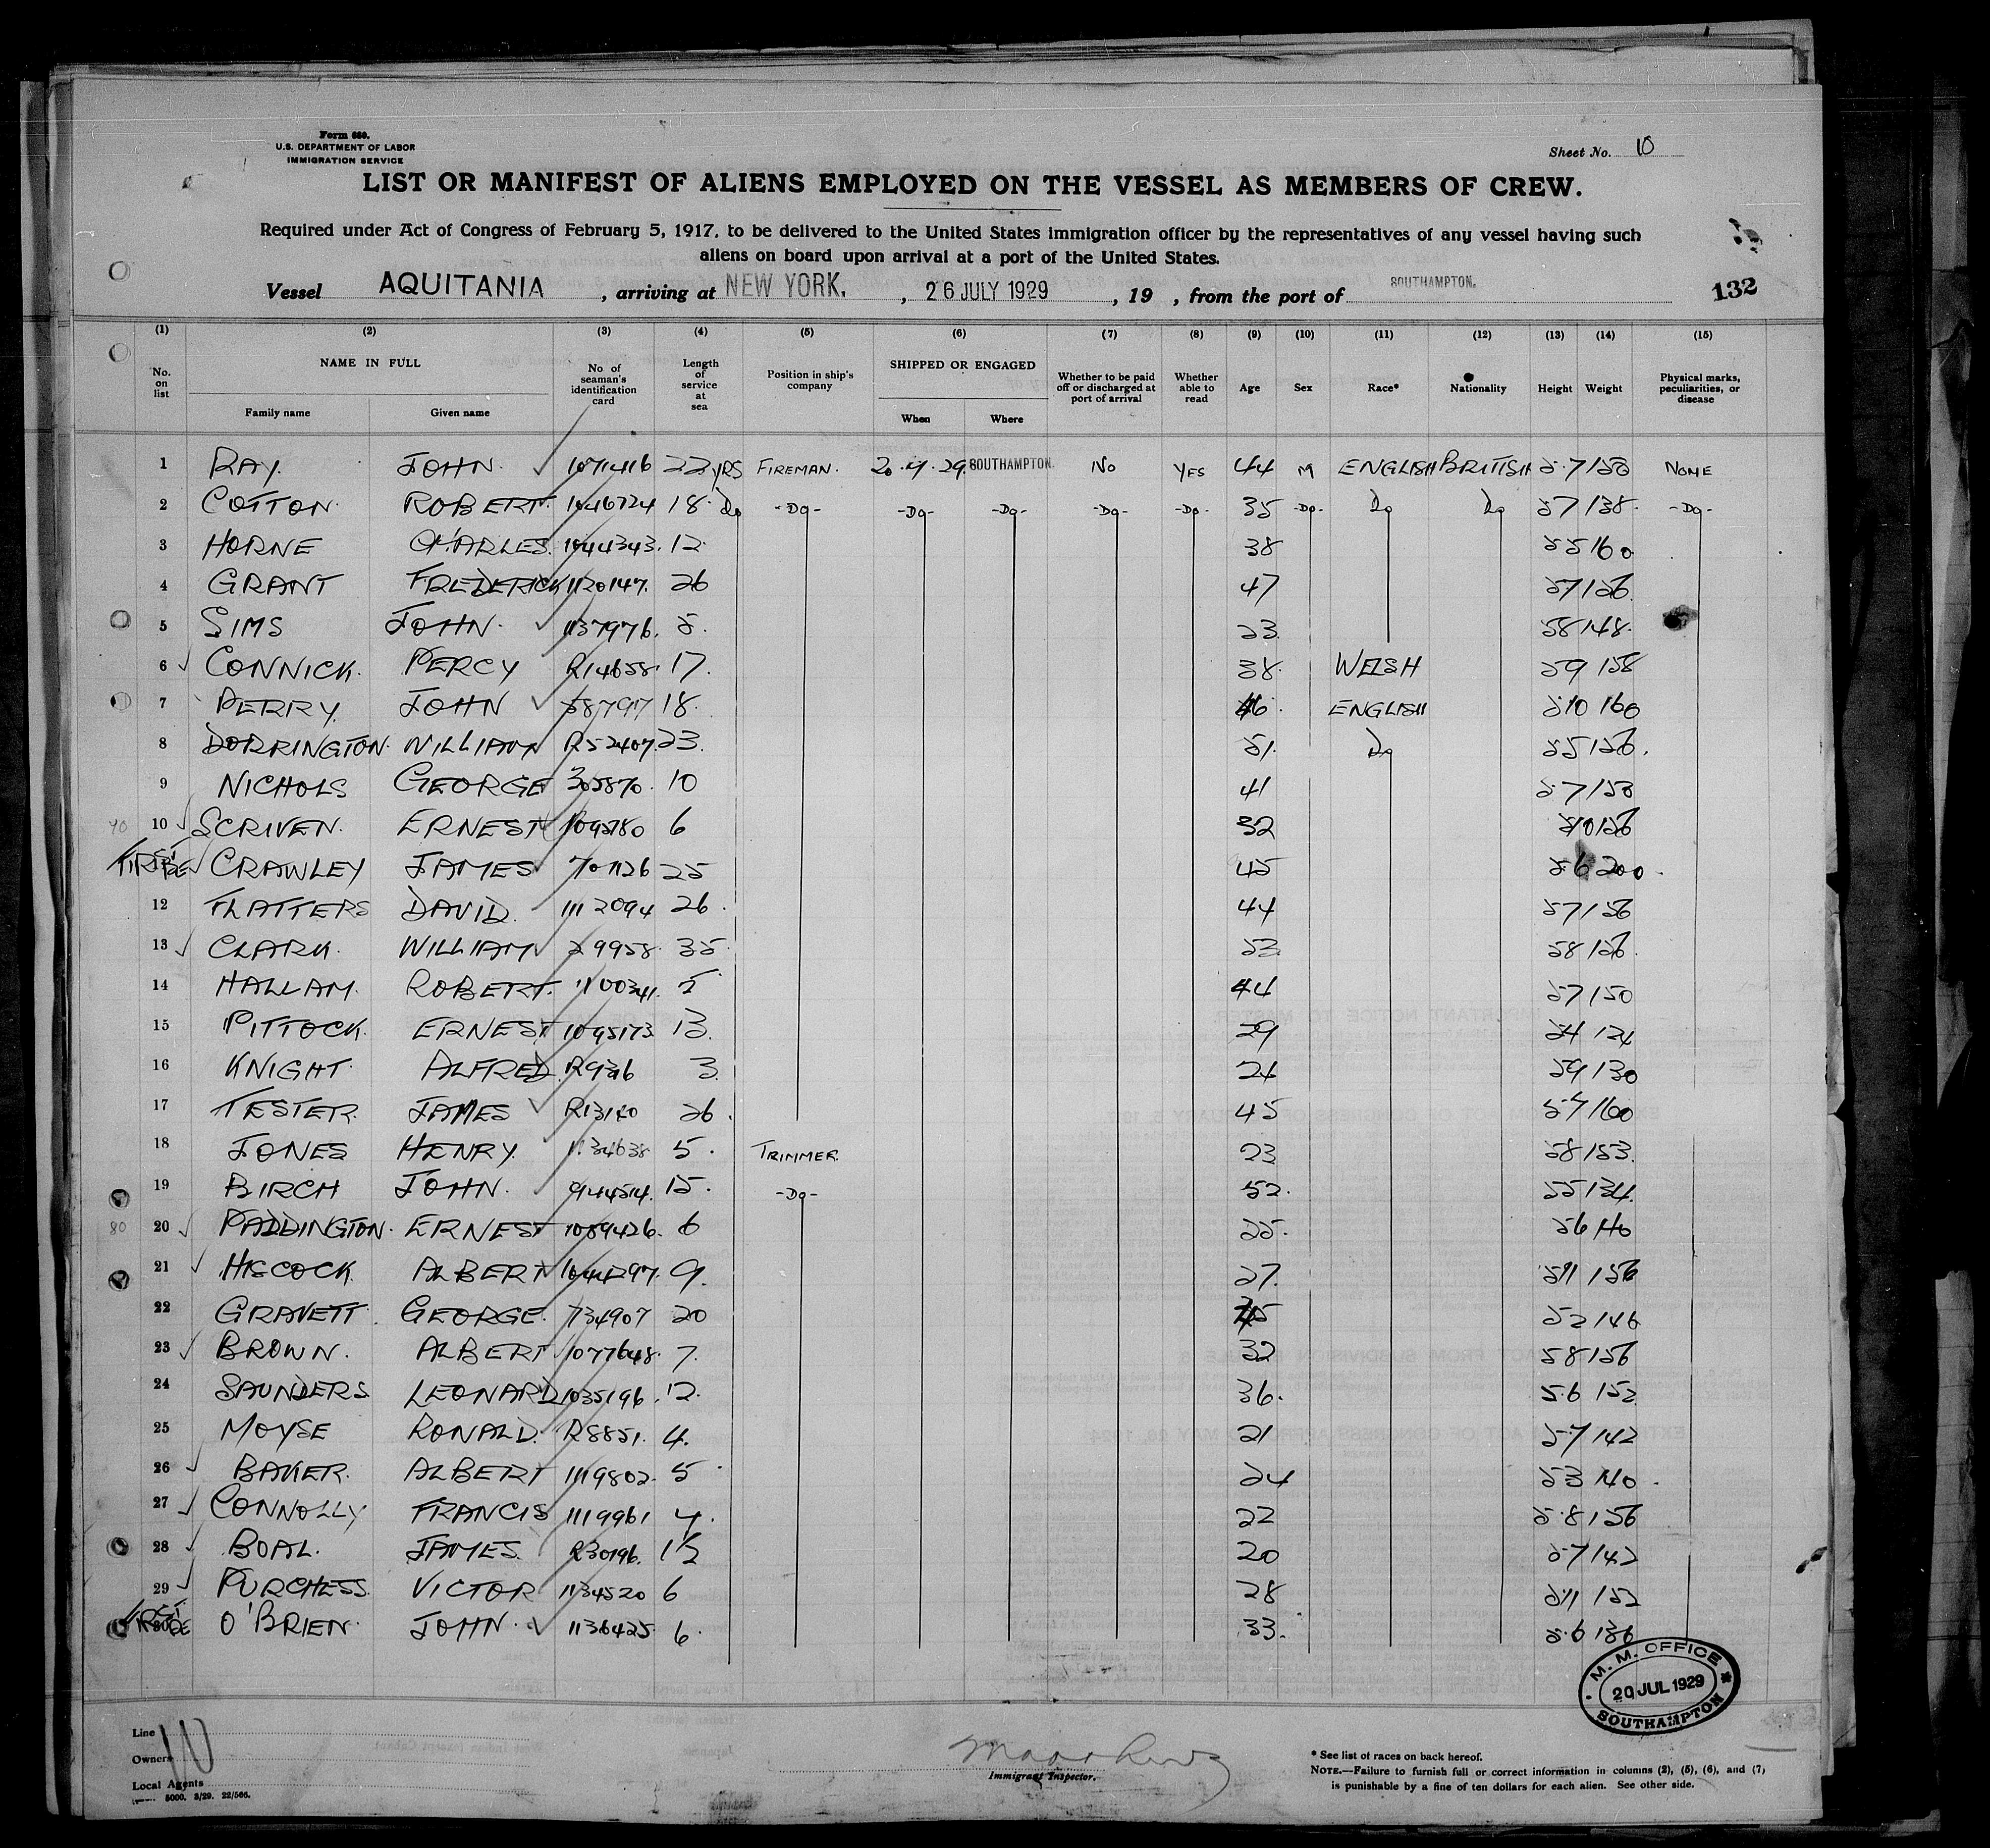 Form 680.
U.S. DEPARTMENT OF LABOR
IMMIGRATION SERVICE
Sheet No. 10
LIST OR MANIFEST OF ALIENS EMPLOYED ON THE VESSEL AS MEMBERS OF CREW.
Required under Act of Congress of February 5, 1917, to be delivered to the United States immigration officer by the representatives of any vessel having such
aliens on board upon arrival at a port of the United States.
Vessel AQUITANIA, arriving at NEW YORK, 26 JULY 1929, 19 , from the port of SOUTHAMPTON.
132
(1) (2) (3) (4) (5) (6) (7) (8) (9) (10) (11) (12) (13) (14) (15)
No. on list NAME IN FULL Family name Given name No of seaman's identification card Length of service at sea Position in ship's company SHIPPED OR ENGAGED When Where Whether to be paid off or discharged at port of arrival Whether able to read Age Sex Race* Nationality Height Weight Physical marks, peculiarities, or disease
1 RAY. JOHN. 1071416 22 YRS FIREMAN. SOUTHAMPTON. NO YES 44 M ENGLISH BRITISH 5.7 150 NONE
2 COTTON. ROBERT. 1046724 18. Do -Do- -Do- -Do- -Do- -Do- 35 -Do- Do Do 57 138. -Do-
3 HORNE CHARLES. 1044343. 12. 38 55 160
4 GRANT FREDERICK 1120147. 26 47 57 156.
5 SIMS JOHN. 1137976. 5. 23 58 148.
6 CONNICK. PERCY R14658. 17. 38. WELSH 59 158
7 PERRY. JOHN 58797 18. 46. ENGLISH 510 160
8 DORRINGTON. WILLIAM R52407 23. 51. Do 55 156.
9 NICHOLS GEORGE 305870. 10 41 5.7 150
40 10 SCRIVEN. ERNEST 1095780 6 32 510 156
CRAWLEY JAMES 701126 25 45 5.6 200.
12 FLATTERS DAVID. 1112094 26. 44 57 156
13 CLARK. WILLIAM 29958. 35. 53 58 156.
14 HALLAM. ROBERT. 1100341. 5 44 57 150
15 PITTOCK. ERNEST 1095173 13. 29 54 124
16 KNIGHT. ALFRED. 3 59 130
17 TESTER. JAMES R13140 26. 45 57 160
18 JONES HENRY. 1134638 5. TRIMMER. 23 58 153.
19 BIRCH JOHN. 944514. 15. -Do- 52. 55 134.
80 20 PADDINGTON. ERNEST 1089426. 6 25. 56 140
21 HISCOCK. ALBERT 9. 27. 511 156
22 GRAVETT. GEORGE. 734907 20 52 146
23 BROWN. ALBERT 1077648. 7. 32 58 156
24 SAUNDERS LEONARD 1035196. 12. 36. 5.6 152
25 MOYSE RONALD. R8851. 4. 21 5.7 142
26 BAKER. ALBERT 1119802. 5 24 53 140.
27 CONNOLLY FRANCIS 1119961 4. 22 5.8 156
28 BOAL. JAMES. R30196. 20 57 142
29 PURCHESS. VICTOR 1134520 6 28 511 152
O'BRIEN. JOHN. 1136425 6. 33. 5.6 136
M. M. OFFICE
20 JUL 1929
SOUTHAMPTON
10
Line
Owners
Local Agents
5000. 3/29. 22/566.
Immigrant Inspector.
* See list of races on back hereof.
NOTE.—Failure to furnish full or correct information in columns (2), (5), (6), and (7)
is punishable by a fine of ten dollars for each alien. See other side.